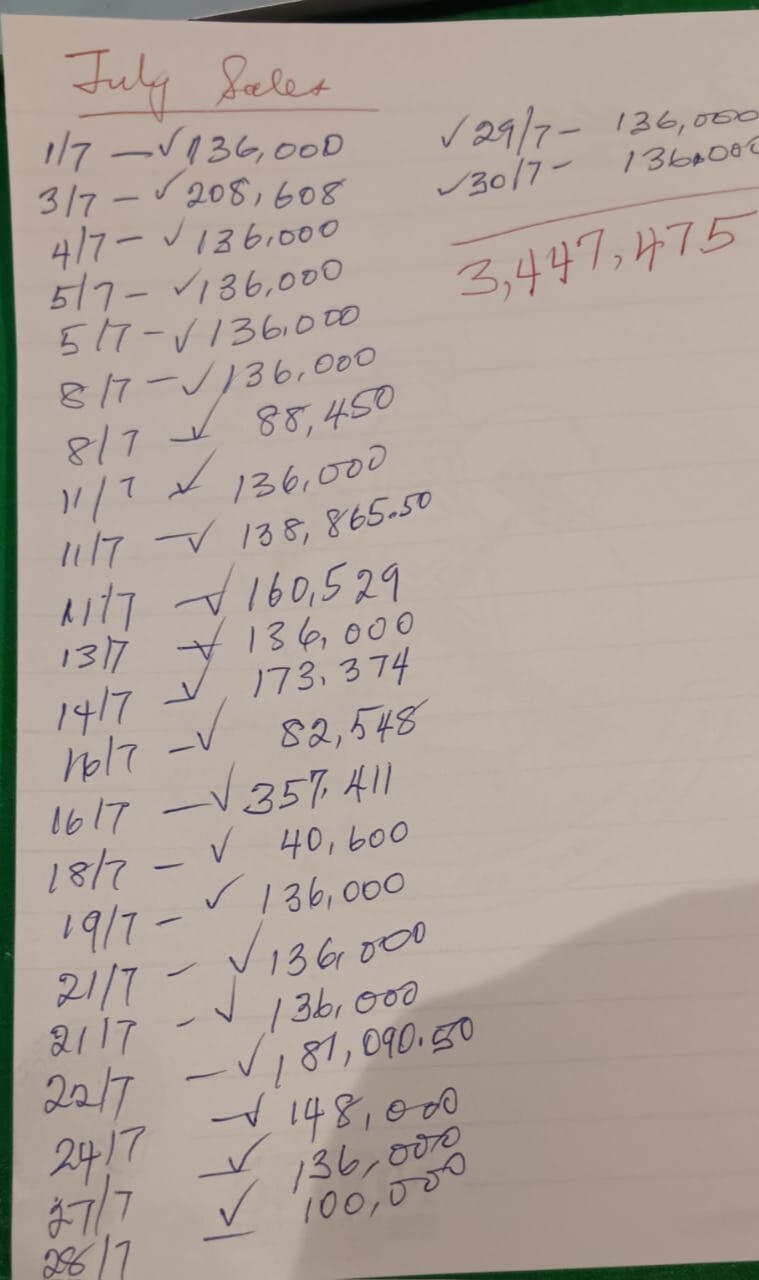 July Sales
1/7 — ✓ 136,000
3/7 – ✓ 208,608
4/7 – ✓ 136,000
5/7 – ✓ 136,000
5/7 – ✓ 136,000
8/7 – ✓ 136,000
8/7 – ✓ 88,450
11/7 – ✓ 136,000
11/7 – ✓ 138,865.50
11/7 – ✓ 160,529
13/7 – ✓ 136,000
14/7 – ✓ 173,374
16/7 – ✓ 82,548
16/7 – ✓ 357,411
18/7 – ✓ 40,600
19/7 – ✓ 136,000
21/7 – ✓ 136,000
21/7 – ✓ 136,000
22/7 – ✓ 181,090.50
24/7 – ✓ 148,000
27/7 – ✓ 136,000
28/7 – ✓ 100,000
✓ 29/7 – 136,000
✓ 30/7 – 136,000
3,447,475